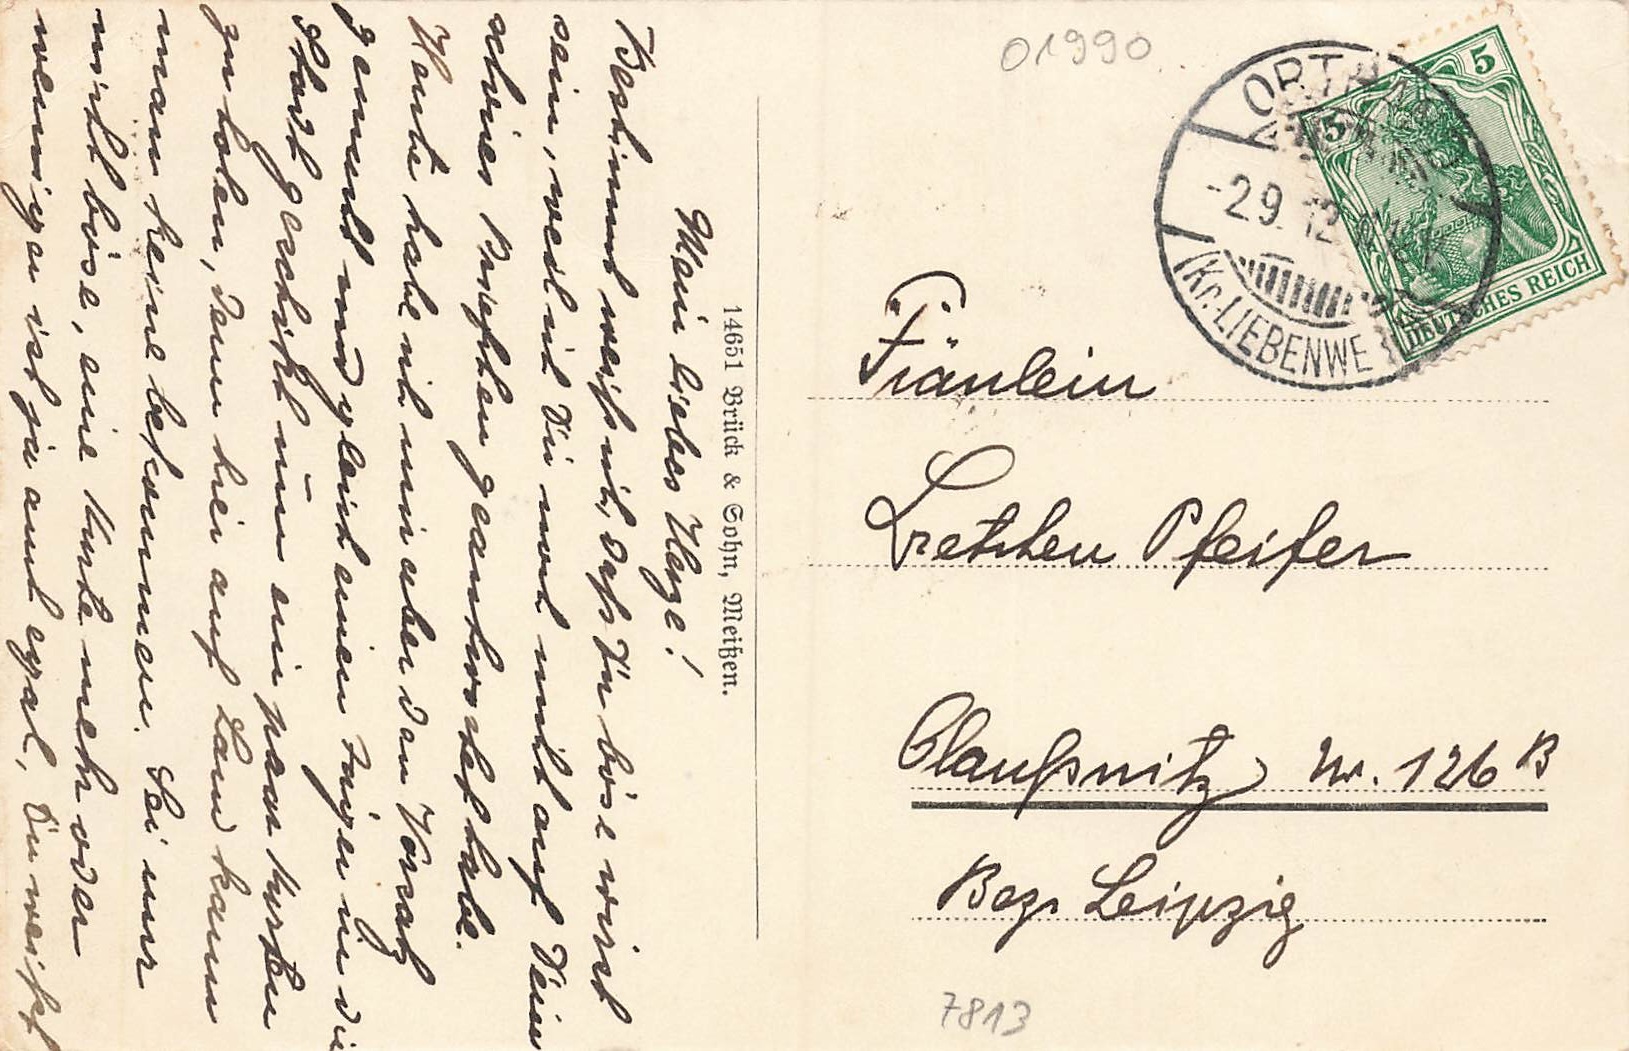 01990
ORTRAND
-29.12.
(Kr. LIEBENWE
5
5
DEUTSCHES REICH
Fräulein
Gretchen Pfeifer
Claußnitz Nr. 126 B
Bez. Leipzig
7813
14651 Brück & Sohn, Meißen.
Mein liebes Herze!
Bestimmt weiß ich, daß Du böse wirst
sein, weil ich Dir noch nicht auf Dein
schönes Briefchen geantwortet habe.
Heute habe ich mir aber den Vorsatz
gemacht und gleich einen Jungen in die
Stadt geschickt um ein paar Karten
zu holen, denn hier auf Land kann
man keine bekommen. Sei nur
nicht böse, eine Karte mehr oder
weniger ist ja auch egal, Du weißt